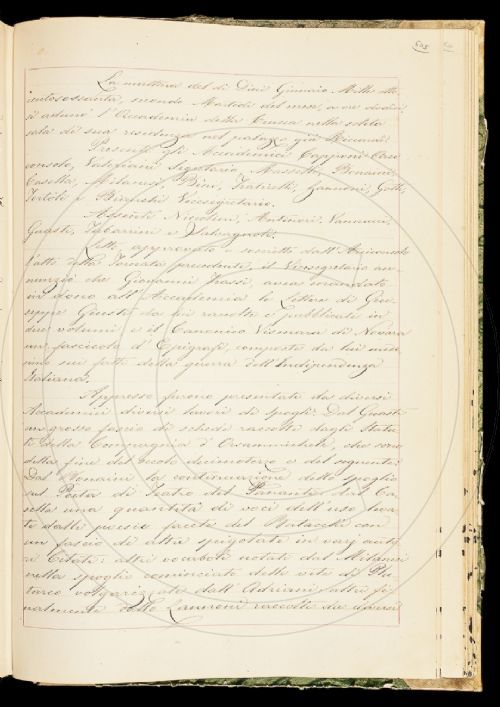 La mattina del dì Dieci Gennaio Mille otto
centosessanta, secondo Martedì del mese, a ore dodici
si adunò l'Accademia della Crusca nella solita
sala di sua residenza nel palazzo già Riccardi.
Presenti gli Accademici Capponi Arci
consolo, Valeriani, Segretario, Bonaini,
Casella, Milanesi, Bini, Fraticelli, Zannoni, Gotti,
Tortoli e Bianchi Vicesegretario.
Assenti Niccolini, Antinori, Vannucci,
Guasti, Tabarrini e Salvagnoli.
Letto, approvato e scritto dall'Arciconsolo
l'atto della Tornata precedente, il Vicesegretario an-
nunziò che Giovanni Frassi, avea mandato
in dono all'Accademia le Lettere di Giu-
seppe Giusti da lui raccolte e pubblicate in
due volumi e il Canonico Vismara di Novara
un fascicolo d'Epigrafi, composte da lui mede-
simo sui fatti della guerra dell'Indipendenza
Italiana.
Appresso furono presentati da diversi
Accademici diversi lavori di spogli: Dal Guasti
un grosso fascio di schede raccolte dagli Statu-
ti della Compagnia d'Orsanmichele, che sono
della fine del secolo decimoterzo e del seguente:
Dal Bonaini la continuazione dello spoglio
sul Poeta di Teatro del Pananti: dal Ca-
sella una quantità di voci dell'uso trat-
te dalle poesie facete del Batacchi con
un fascio di altre spigolate in varj auto-
ri Citati: altri vocaboli notati dal Milanesi
nello spoglio cominciato delle vite di Plu-
tarco volgarizzate dall'Adriani: altri fi-
nalmente dallo Zannoni raccolti da diversi